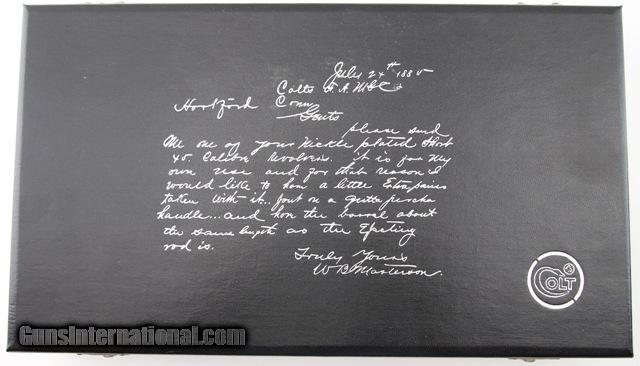 July 24th 1885
Colts F. A. Mfg Co
Hartford Conn
Gents
please send
Me one of your Nickle plated Short
45. Calibre Revolvers. it is for My
own use and for that reason I
would like to have a little Extra pains
taken with it.. put on a gutta percha
handle... and have the barrel about
the same length as the Ejecting
rod is.
Truly Yours
W B Masterson.
COLT
GunsInternational.com